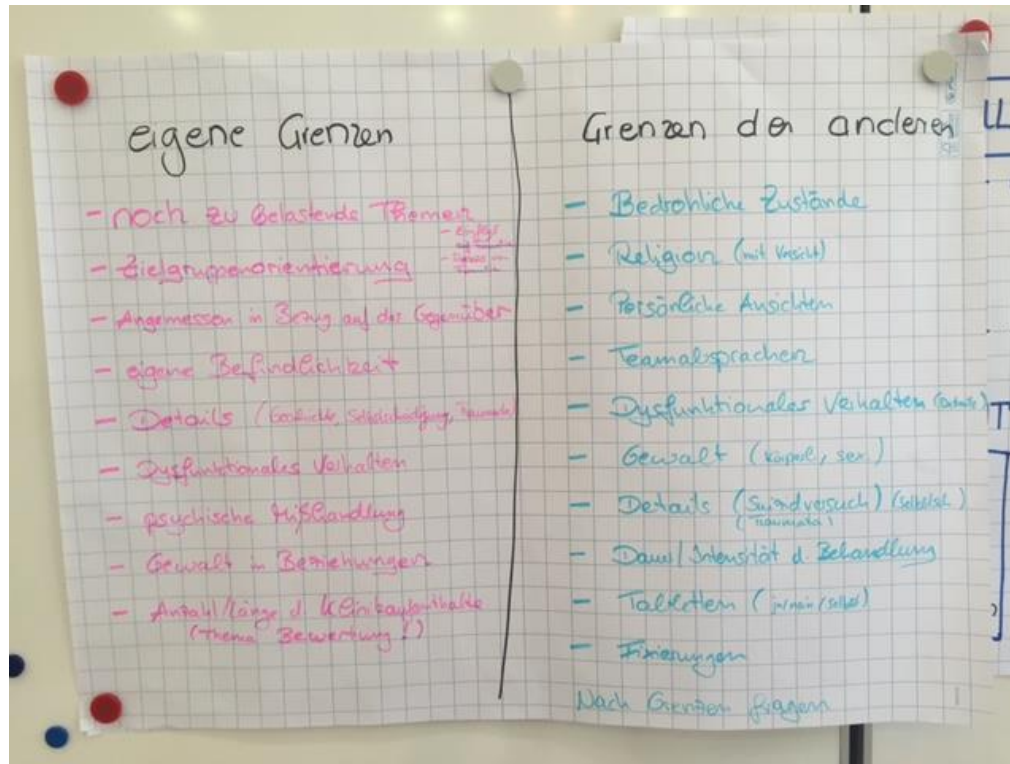 eigene Grenzen
- noch zu belastende Themen
- Zielgruppenorientierung
- Angemessen in Bezug auf das Gegenüber
- eigene Befindlichkeit
- Details (
- Dysfunktionales Verhalten
- psychische Mißhandlung
- Gewalt in Beziehungen
- Anzahl/Länge d. Klinikaufenthalte
(Thema Bewertung!)
Grenzen der anderen
- Bedrohliche Zustände
- Religion (mit Vorsicht)
- Persönliche Ansichten
- Teamabsprachen
- Dysfunktionales Verhalten
- Gewalt (körperl, sex.)
- Details (Suizidversuch)
(Traumata)
- Dauer/Intensität d. Behandlung
-
- Fixierungen
Nach Grenzen fragen